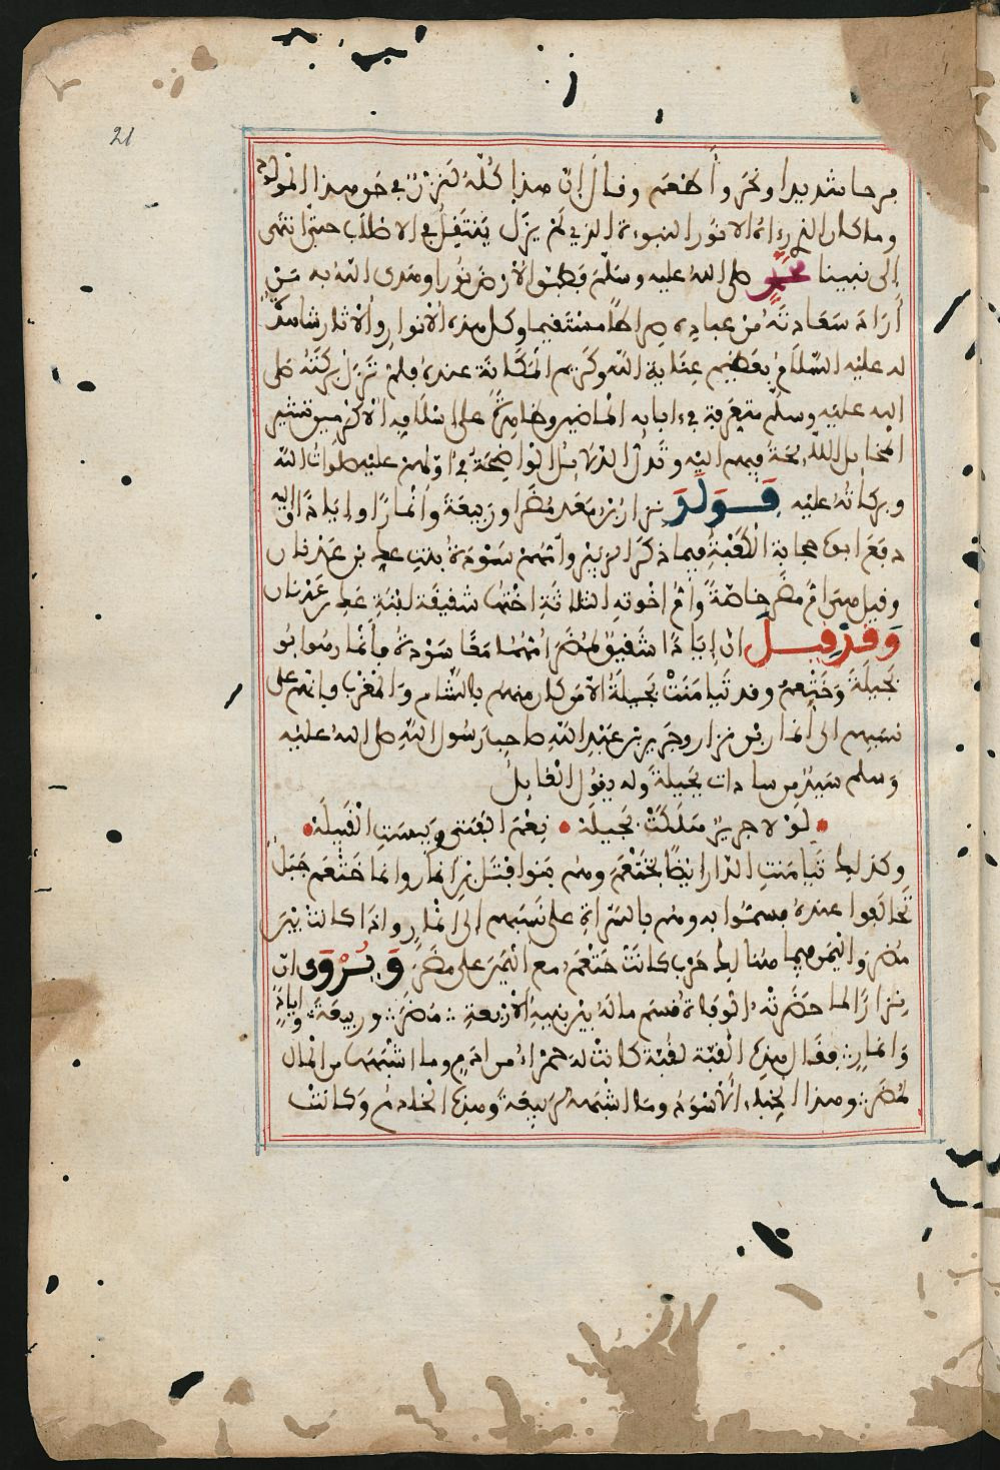 21
فرحا شديدا ونحر وأطعم وقال إن هذا كله نزر في حق هذا المولود
وما كان الذي رءاه الا نور النبوءة الذي لم يزل ينتقل في الاصلاب حتى انتهى
إلى نبينا محمد صلى الله عليه وسلم فطبق الأرض نورا وهدى الله به من
أراد سعادته من عباده صراطا مستقيما وكل هذه الأنوار والأثار شاهدة
له عليه السلام بعظيم عناية الله وكريم المكانة عنده فلم تزل بركته صلى
الله عليه وسلم متعرفة في ءابايه الماضين وظاهرة على اسلافه الأكرمين تشير
المخايل اللايحة فيهم اليه وتدل الدلايل الواضحة في أوليهم عليه صلوات الله
وبركاته عليه فولد نزار بن معد مضرا وربيعة وأنمارا وإيادا واليه
دفع ابوه حجابة الكعبة فيما ذكر الزبير وأمهم سودة بنت عك بن عدنان
وقيل هي ام مضر خاصة وأم اخوته الثلاثة اختها شقيقة ابنة عك بن عدنان
وقد قيل ان إيادا شقيق لمضر أمهما معا سودة فأنمار هو ابو
بجيلة وخثعم وقد تيامنت بجيلة الا من كان منهم بالشام والمغرب فانهم على
نسبهم الى أنمار بن نزار وجرير بن عبد الله صاحب رسول الله صلى الله عليه
وسلم سيد من سادات بجيلة وله يقول القايل
لولا جرير هلكت بجيلة نعم الفتى وبيست القبيلة
وكذلك تيامنت الدار ايضا بخثعم وهم بنو اقتل بن أنمار وانما خثعم جبل
تحالفوا عنده فسموا به وهم بالسراة على نسبهم الى انمار واذا كانت بين
مضر واليمن فيما هنالك حرب كانت خثعم مع اليمن على مضر ويروى ان
نزارا لما حضرته الوفاة قسم ماله بين بنيه الأربعة مضر وربيعة وإياد
وانمار فقال هذه القبة لقبة كانت له حمراء من ادم وما اشبهها من المال
لمضر وهذا الخباء الأسود وما اشبهه لربيعة وهذه الخادم وكانت